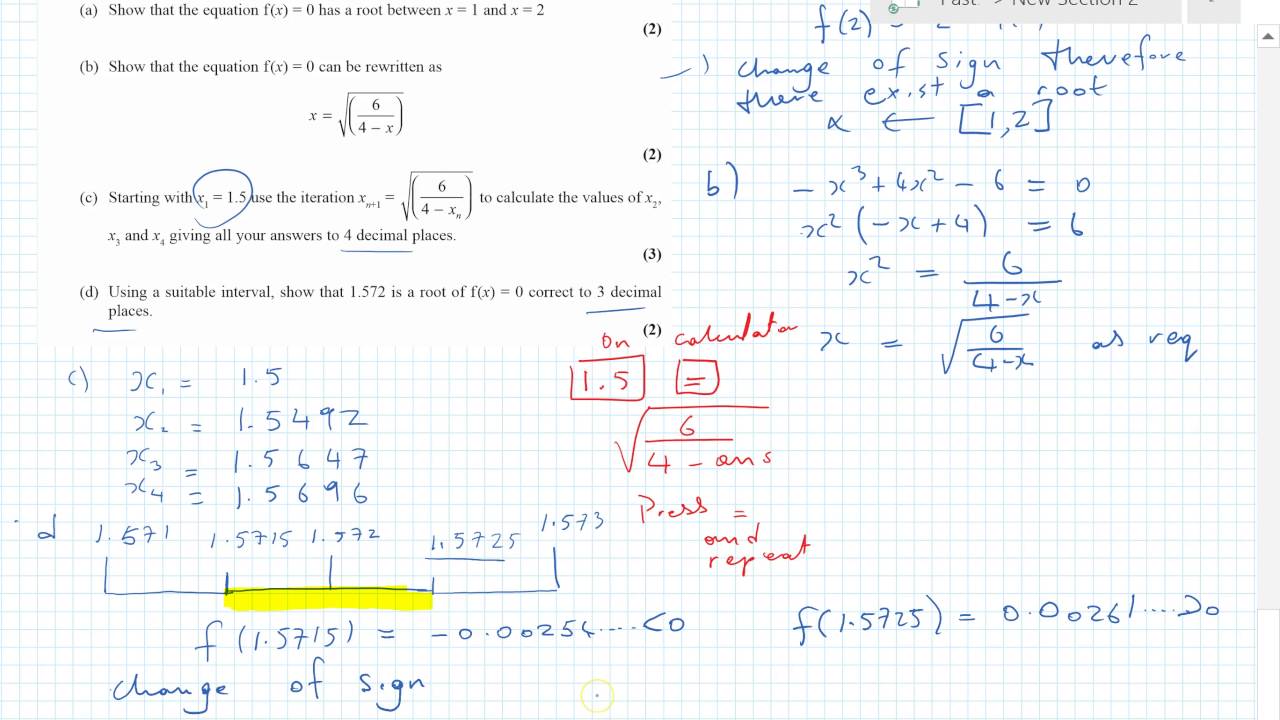 (a) Show that the equation f(x) = 0 has a root between x = 1 and x = 2
(2)
(b) Show that the equation f(x) = 0 can be rewritten as
x = √(6/(4 − x))
(2)
(c) Starting with x₁ = 1.5 use the iteration xₙ₊₁ = √(6/(4 − xₙ)) to calculate the values of x₂,
x₃ and x₄ giving all your answers to 4 decimal places.
(3)
(d) Using a suitable interval, show that 1.572 is a root of f(x) = 0 correct to 3 decimal
places.
(2)
New Section 2
f(2) = 2
change of sign therefore
there exist a root
α ← [1,2]
b) − x³ + 4x² − 6 = 0
x² (− x + 4) = 6
x² = 6/(4 − x)
x = √(6/(4 − x)) as req
c) x₁ = 1.5
x₂ = 1.5492
x₃ = 1.5647
x₄ = 1.5696
on calculator
1.5 =
√(6/(4 − ans))
Press =
and
repeat
d 1.571 1.5715 1.572 1.5725 1.573
f(1.5715) = −0.00254....<0
f(1.5725) = 0.00261....>0
change of sign